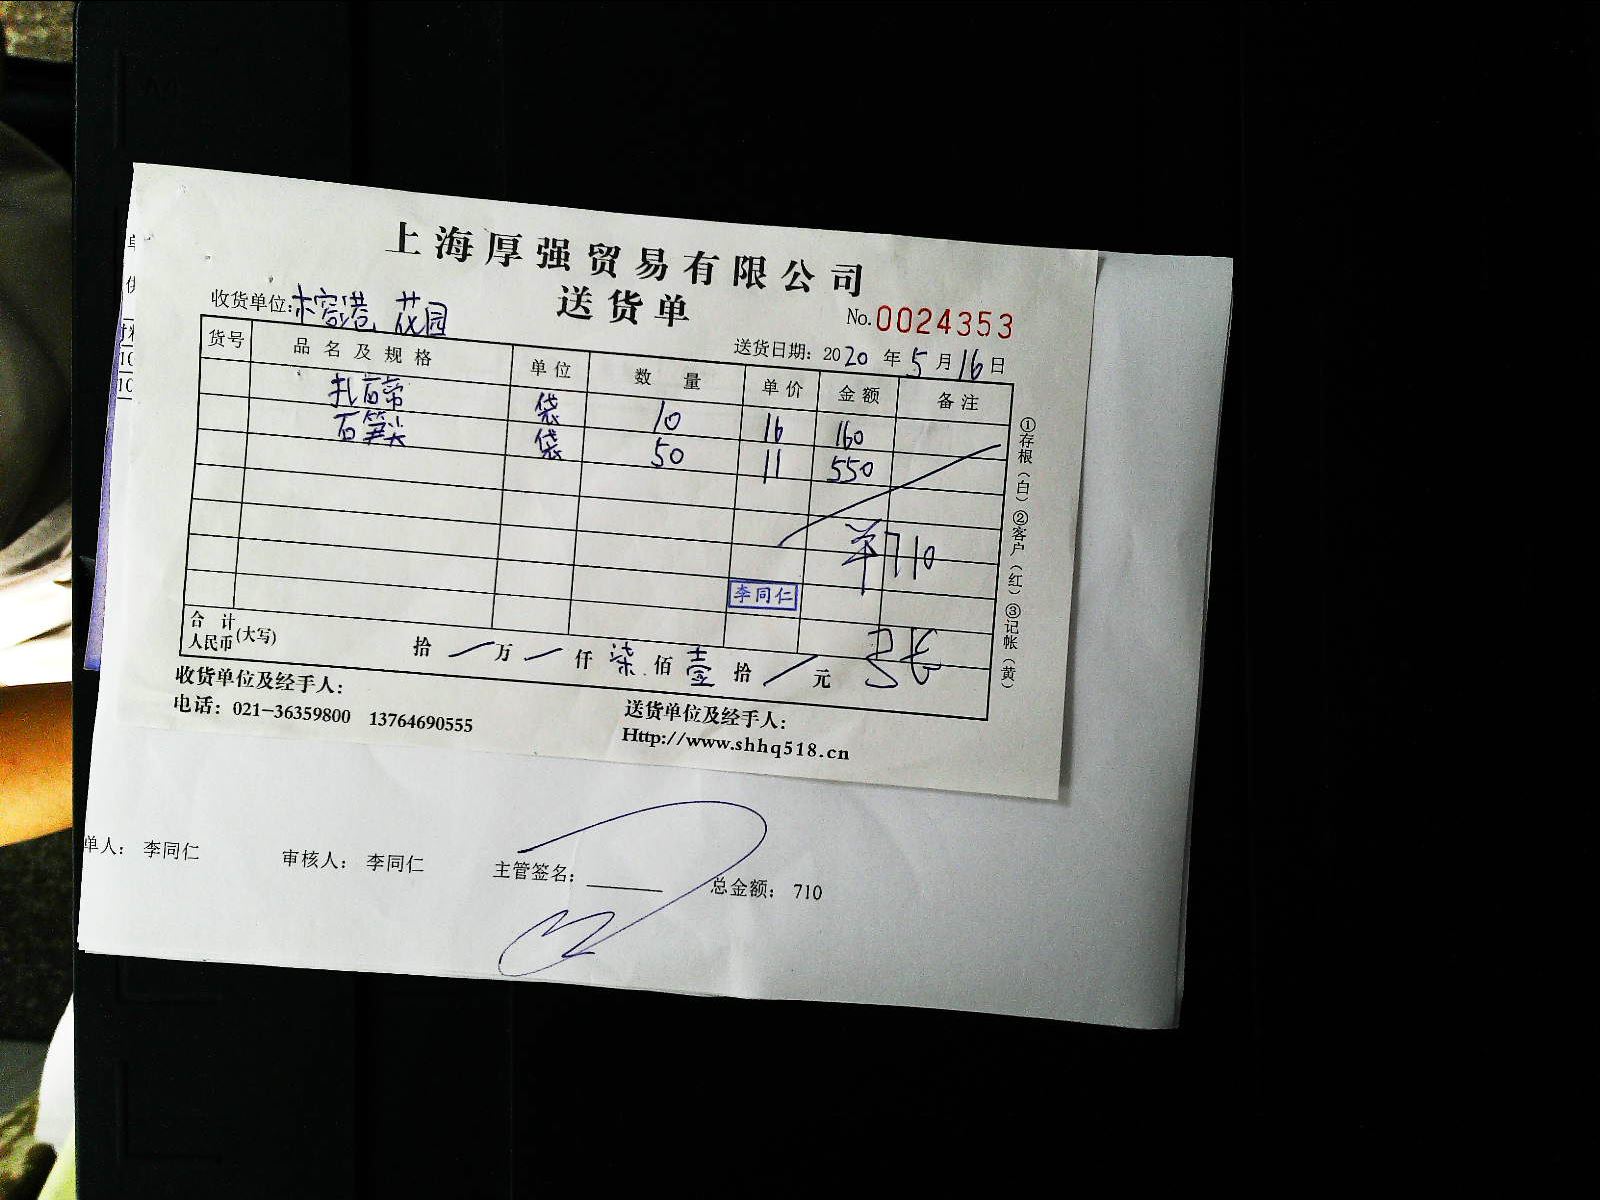 上海厚强贸易有限公司
送货单
No.0024353
收货单位: 榕港 花园
送货日期: 2020 年 5 月 16 日
货号 品名及规格 单位 数量 单价 金额 备注
袋 10 16 160
石笋尖 袋 50 11 550
羊710
李同仁
合计
人民币(大写) 拾 / 万 / 仟 柒 佰 壹 拾 / 元
①存根(白)②客户(红)③记帐(黄)
收货单位及经手人:
送货单位及经手人:
电话: 021-36359800 13764690555
Http://www.shhq518.cn
单
供
10
10
单人: 李同仁 审核人: 李同仁 主管签名: ______ 总金额: 710